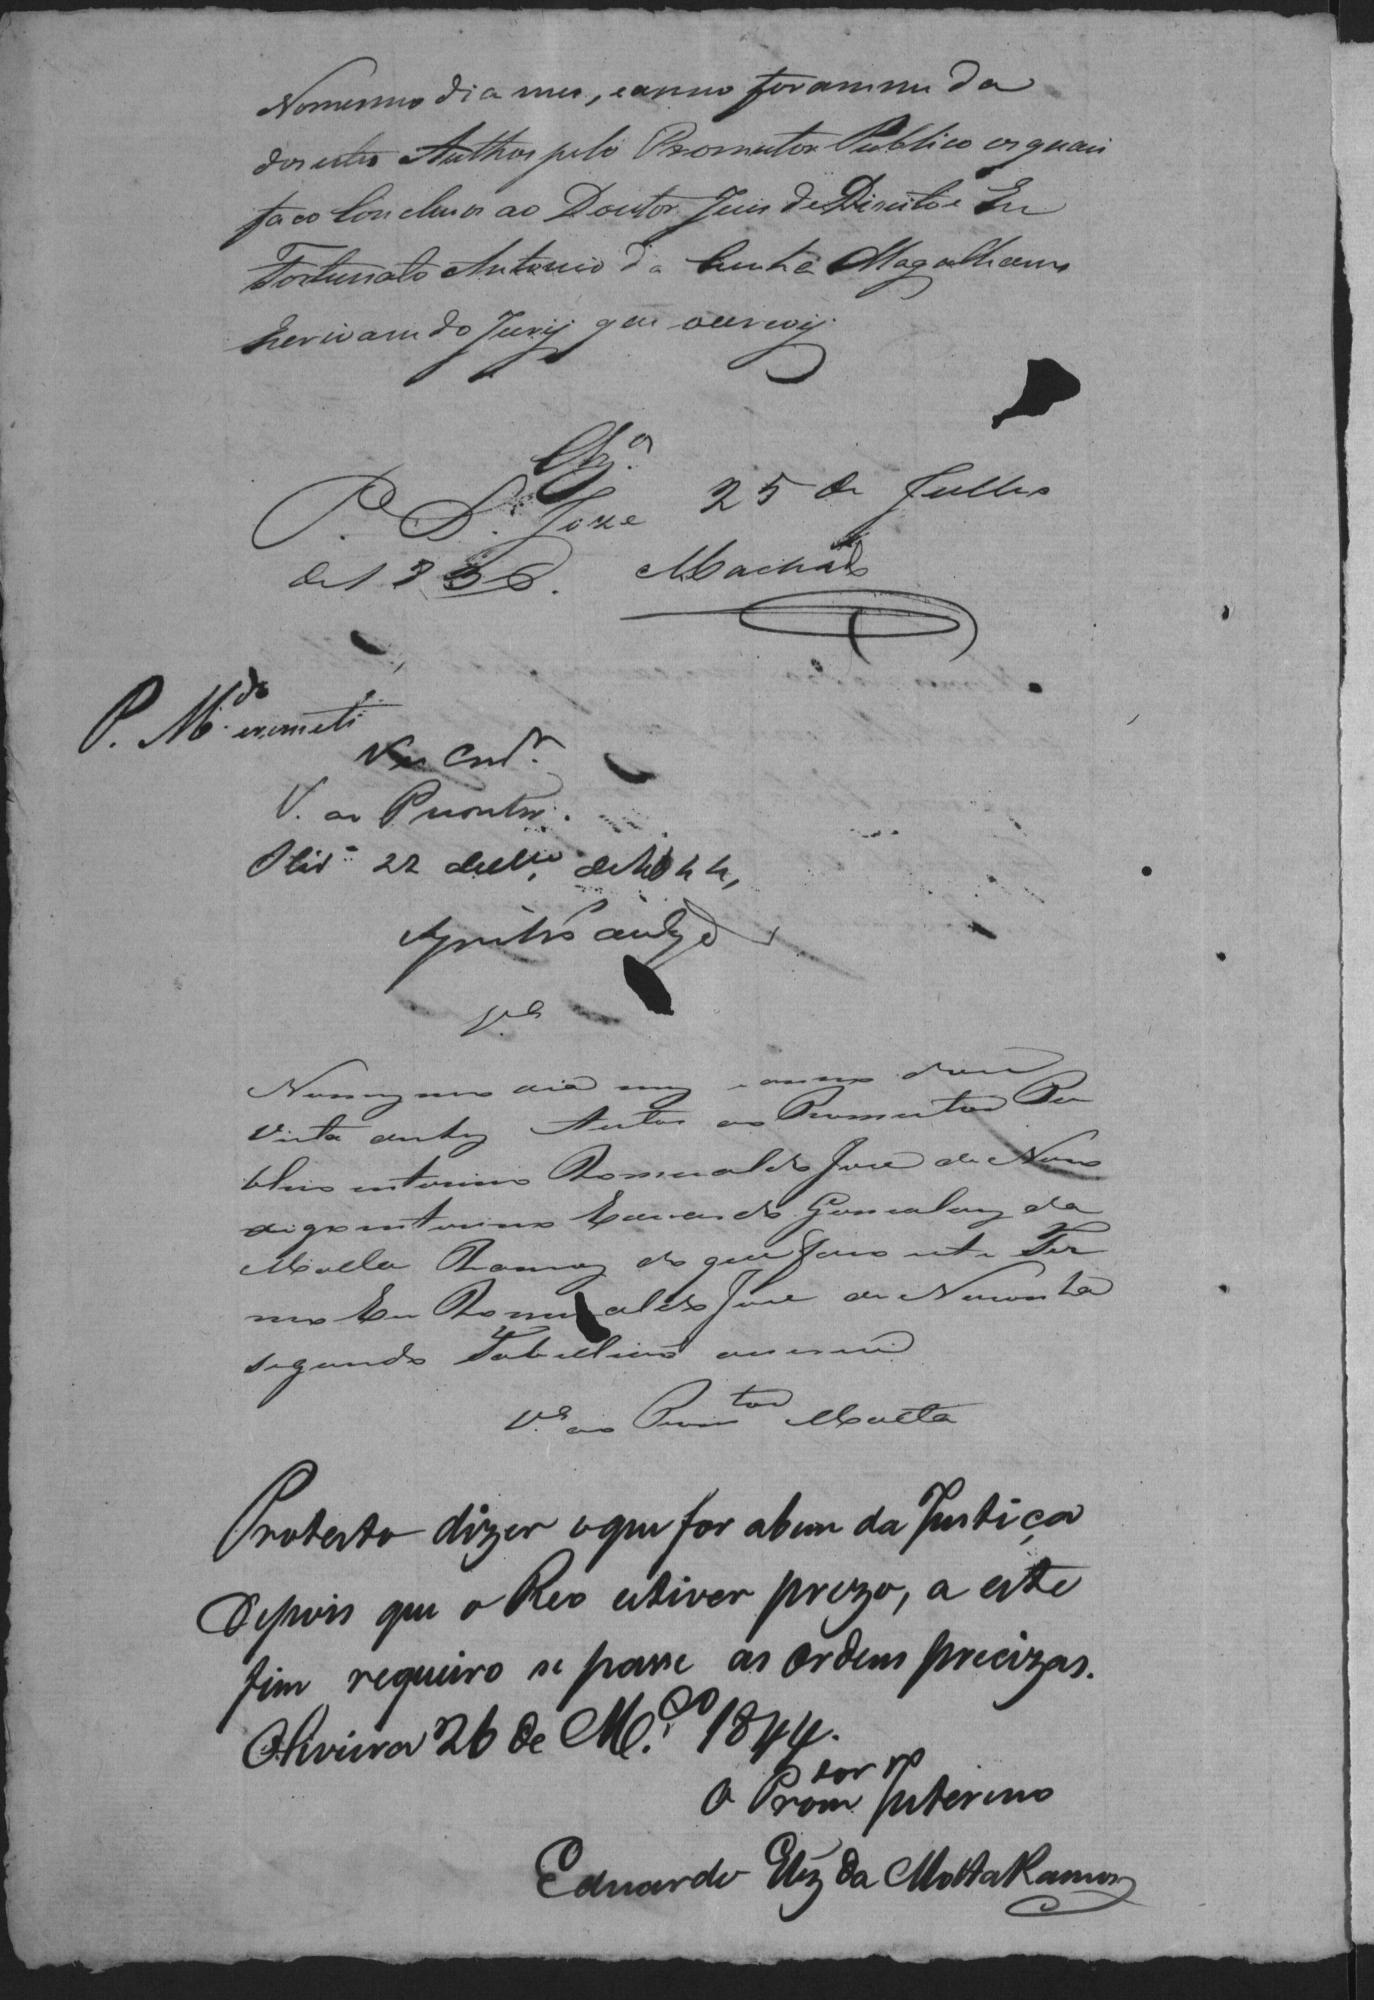 Nomesmo dia mes, eanno foramme da
dos estes Authos pelo Promutor Publico osquais
faco Concluzos ao Doutor Juis de Direito e Eu
Fortunato Antonio da Cunha Magalhaens
Escrivam do Jury que oescrevy
Clz.os
P. S. Joze 25 de Julho
de 1836. Machado
P. M.do
V. ao Promtor.
Olivrª 22 de de 1844,
Nomesmo dia mes eanno dou
Vista destes Autos ao Promutor Pu
blico interino Romualdo Jose de Noro
digo interino Eduardo Gonsalves da
Motta Ramos do que faso este Ter
mo Eu Romualdo Jose de Noronha
segundo Tabelliam oescrevi
V.ª ao Prom.tor Motta
Protesto dizer oque for abem da Justiça
Depois que o Reo estiver prezo, a este
fim requeiro se passe as ordens precizas.
Oliveira 26 de M.ço 1844.
O Promtor Pco Interino
Eduardo Glz da Motta Ramos